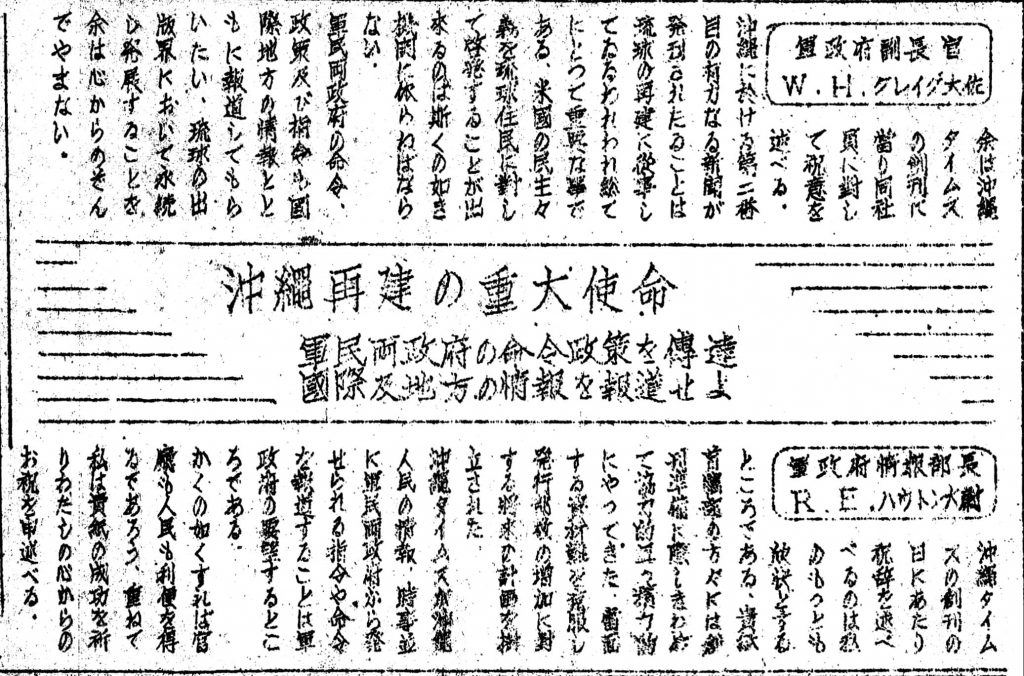 軍政府副長官
W.H.クレイグ大佐
余は沖縄
タイムス
の創刊に
當り同社
員に對し
て祝意を
述べる。
沖縄に於ける第二番
目の有力なる新聞が
発刊されたることは
琉球の再建に從事し
てゐるわれわれ総て
にとつて重要な事で
ある、米國の民主々
義を琉球住民に對し
て啓発することが出
来るのは斯くの如き
機関に依らねばなら
ない。
軍民両政府の命令、
政策及び指令も國
際地方の情報とと
もに報道してもら
いたい、琉球の出
版界において永続
し発展することを
余は心からのぞん
でやまない。
沖縄再建の重大使命
軍民両政府の命令政策を傳達
國際及地方の情報を報道せよ
軍政府情報部長
R.E.ハウトン大尉
沖縄タイム
スの創刊の
日にあたり
祝辞を述べ
べるのは私
のもつとも
欣快とする
ところである、貴紙
首脳部の方々には
刊準備に際しきわめ
て協力的且つ精力的
にやつてきた、當面
する資材難を克服し
発行部数の増加に對
する将来の計画を樹
立された
沖縄タイムスが沖縄
人民の情報、時事並
に軍民両政府から発
せられる指令や命令
を報道することは軍
政府の要望するとこ
ろである。
かくの如くすれば官
廳も人民も利便を得
るであろう、重ねて
私は貴紙の成功を祈
りわたしの心からの
お祝を申述べる。